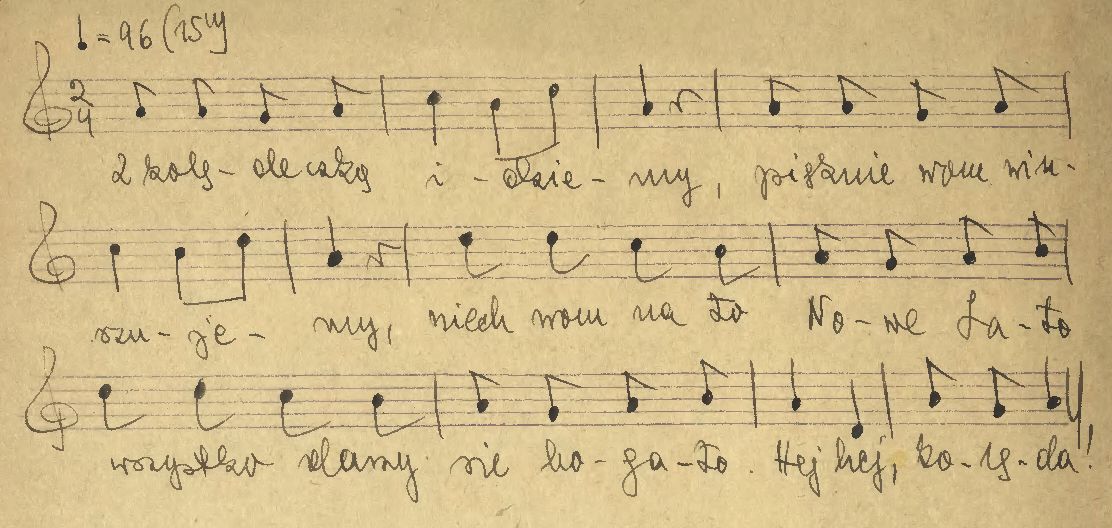 ♩ = 96 (15")
2 4
Z kolę-deczką i-dzie-my, pięknie wom win-
szu-je-my, niech wom na to No-we La-to
wszystko darzy sie bo-ga-to. Hej hej, ko-lę-da!